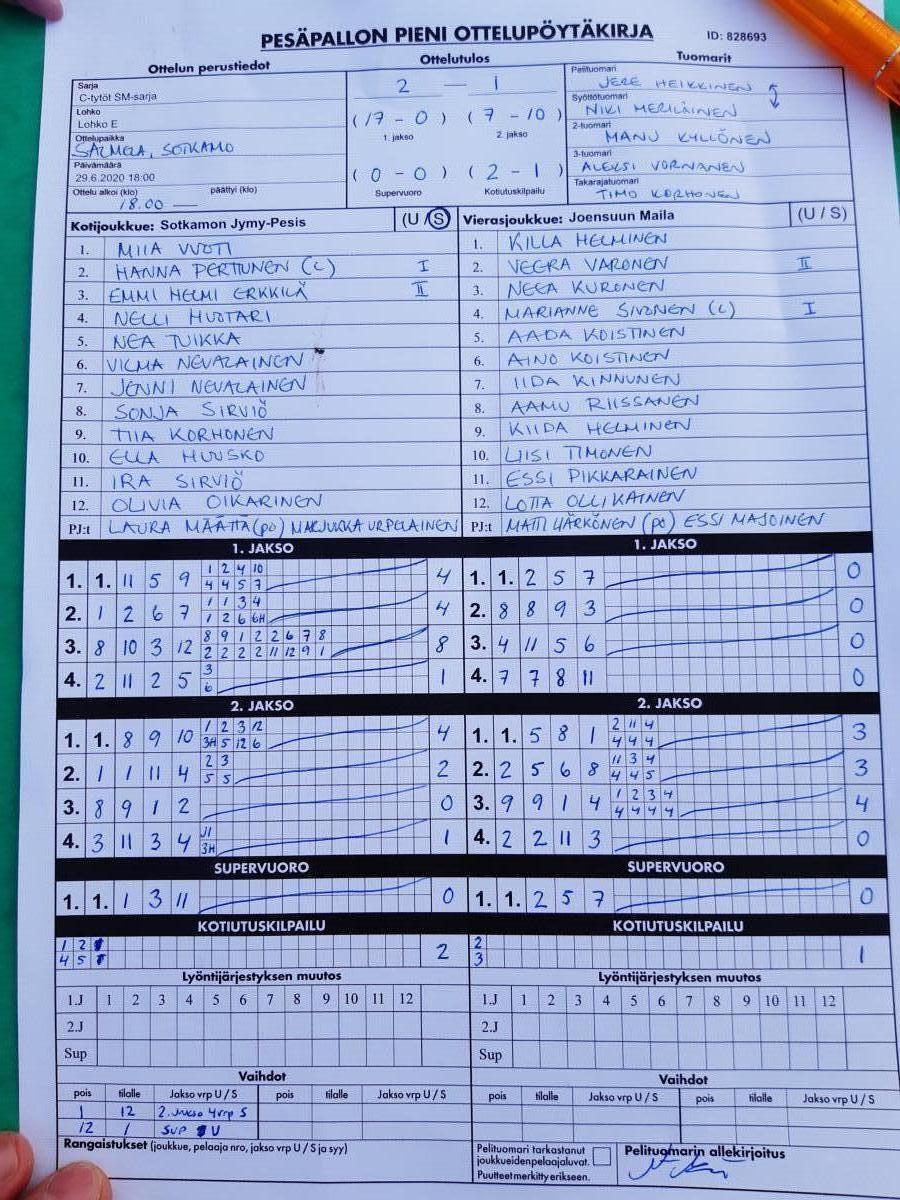 PESÄPALLON PIENI OTTELUPÖYTÄKIRJA ID: 828693
Ottelun perustiedot Ottelutulos Tuomarit
Sarja
C-tytöt SM-sarja
Lohko
Lohko E
Ottelupaikka
SALMELA, SOTKAMO
Päivämäärä
29.6.2020 18:00
Ottelu alkoi (klo) päättyi (klo)
18.00 —
2 — 1
(17 - 0) (7 - 10)
1. jakso 2. jakso
(0 - 0) (2 - 1)
Supervuoro Kotiutuskilpailu
Pelituomari
JERE HEIKKINEN
Syöttötuomari
NIKI MERILÄINEN
2-tuomari
MANU KYLLÖNEN
3-tuomari
ALEKSI VORNANEN
Takarajatuomari
TIMO KORHONEN
Kotijoukkue: Sotkamon Jymy-Pesis (U/S)
1. MIIA VUOTI
2. HANNA PERTTUNEN (L) I
3. EMMI HELMI ERKKILÄ II
4. NELLI HUOTARI
5. NEA TUIKKA
6. VILMA NEVALAINEN
7. JENNI NEVALAINEN
8. SONJA SIRVIÖ
9. TIIA KORHONEN
10. ELLA HUUSKO
11. IRA SIRVIÖ
12. OLIVIA OIKARINEN
PJ:t LAURA MÄÄTTÄ (po) MARJUKKA URPELAINEN
Vierasjoukkue: Joensuun Maila (U / S)
1. KILLA HELMINEN
2. VEERA VARONEN II
3. NEEA KURONEN
4. MARIANNE SIVONEN (L) I
5. AADA KOISTINEN
6. AINO KOISTINEN
7. IIDA KINNUNEN
8. AAMU RIISSANEN
9. KIIDA HELMINEN
10. LIISI TIMONEN
11. ESSI PIKKARAINEN
12. LOTTA OLLIKAINEN
PJ:t MATTI HÄRKÖNEN (po) ESSI MAJOINEN
1. JAKSO
1. 1. 11 5 9 1 2 4 10 4
4 4 5 7
2. 1 2 6 7 1 1 3 4 4
1 2 6 6H
3. 8 10 3 12 8 9 1 2 2 6 7 8 8
2 2 2 2 11 12 9 1
4. 2 11 2 5 3 1
6
1. JAKSO
1. 1. 2 5 7 0
2. 8 8 9 3 0
3. 4 11 5 6 0
4. 7 7 8 11 0
2. JAKSO
1. 1. 8 9 10 1 2 3 12 4
3H 5 12 6
2. 1 1 11 4 2 3 2
5 5
3. 8 9 1 2 0
4. 3 11 3 4 11 1
3H
2. JAKSO
1. 1. 5 8 1 2 11 4 3
4 4 4
2. 2 5 6 8 11 3 4 3
4 4 5
3. 9 9 1 4 1 2 3 4 4
4 4 4 4
4. 2 2 11 3 0
SUPERVUORO
1. 1. 1 3 11 0
SUPERVUORO
1. 1. 2 5 7 0
KOTIUTUSKILPAILU
1 2 2
4 5
KOTIUTUSKILPAILU
2 1
3
Lyöntijärjestyksen muutos
1.J 1 2 3 4 5 6 7 8 9 10 11 12
2.J
Sup
Lyöntijärjestyksen muutos
1.J 1 2 3 4 5 6 7 8 9 10 11 12
2.J
Sup
Vaihdot
pois tilalle Jakso vrp U / S pois tilalle Jakso vrp U / S
1 12 2. Jakso 4vrp S
12 1 SUP U
Vaihdot
pois tilalle Jakso vrp U / S pois tilalle Jakso vrp U / S
Rangaistukset (joukkue, pelaaja nro, jakso vrp U / S ja syy)
Pelituomari tarkastanut
joukkueidenpelaajaluvat.
Puutteetmerkittyerikseen.
Pelituomarin allekirjoitus